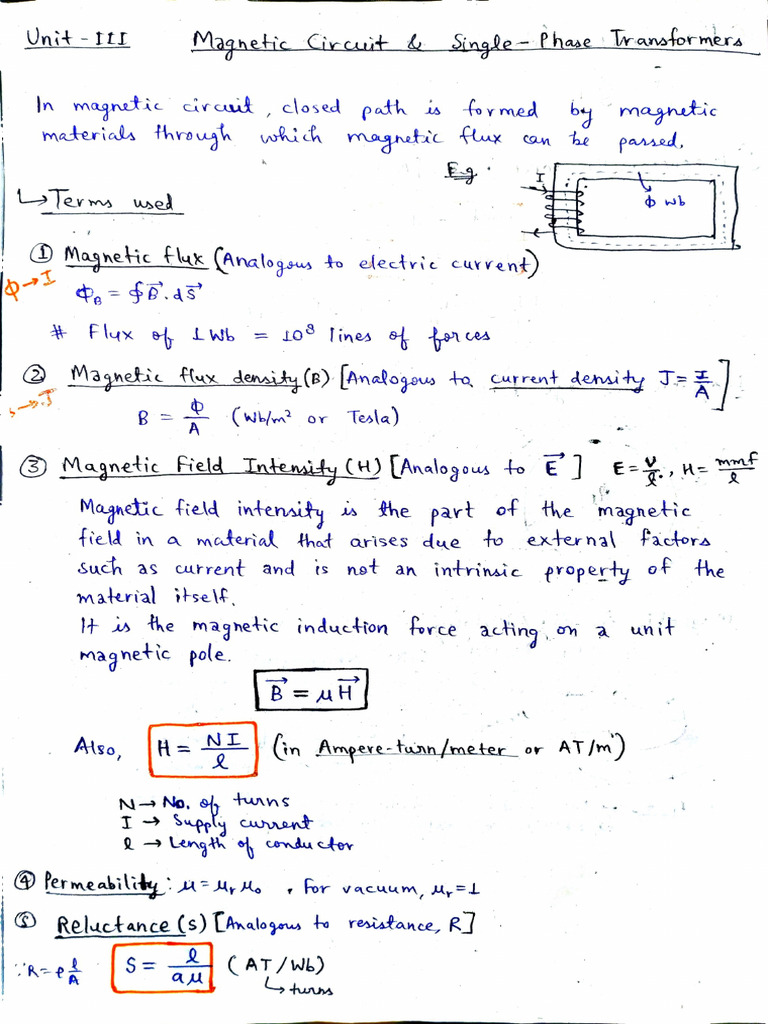 Unit-III Magnetic Circuit & Single-Phase Transformers
In magnetic circuit, closed path is formed by magnetic
materials through which magnetic flux can be passed.
E.g.
I
Φ Wb
↳ Terms used
① Magnetic flux (Analogous to electric current)
Φ→I
Φ_B = ∮B⃗.dS⃗
# Flux of 1Wb = 10⁸ lines of forces
② Magnetic flux density (B) [Analogous to current density J = I/A]
→J
B = Φ/A (Wb/m² or Tesla)
③ Magnetic Field Intensity (H) [Analogous to E⃗] E = V/l, H = mmf/l
Magnetic field intensity is the part of the magnetic
field in a material that arises due to external factors
such as current and is not an intrinsic property of the
material itself.
It is the magnetic induction force acting on a unit
magnetic pole.
B⃗ = μH⃗
Also, H = NI/l (in Ampere-turn/meter or AT/m)
N → No. of turns
I → Supply current
l → Length of conductor
④ Permeability: μ = μr μ₀, For vacuum, μr = 1
⑤ Reluctance (S) [Analogous to resistance, R]
∵R = ρ l/A S = l/aμ (AT/Wb)
↳ turns